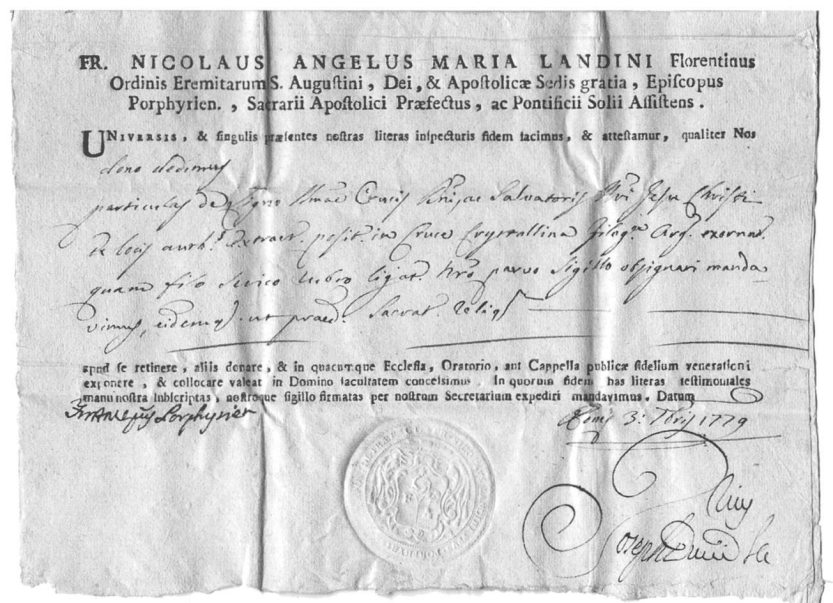 FR. NICOLAUS ANGELUS MARIA LANDINI Florentinus
Ordinis Eremitarum S. Augustini, Dei, & Apostolicæ Sedis gratia, Episcopus
Porphyrien., Sacrarii Apostolici Præfectus, ac Pontificii Solii Assistens.
UNIVERSIS, & singulis præsentes nostras literas inspecturis fidem facimus, & attestamur, qualiter Nos
dono dedimus
particulas de Ligno Crucis Salvatoris Jesu Christi
ex locis extract. posit. in Cruce Crystallina exornat.
quam filo serico rubro ligat. parvo sigillo obsignari manda
vimus, eidemq. ut Sacrat. Reliq
apud se retinere, aliis donare, & in quacunque Ecclesia, Oratorio, aut Cappella publicæ fidelium venerationi
exponere, & collocare valeat in Domino facultatem concessimus. In quorum fidem has literas testimoniales
manu nostra subscriptas, nostroque sigillo firmatas per nostrum Secretarium expediri mandavimus. Datum
Porphyrien 3. 1779
Joseph